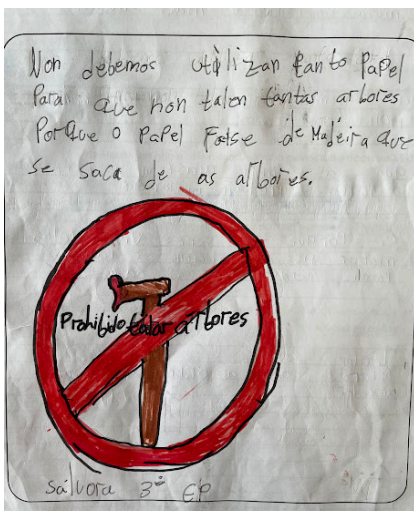 Non debemos utilizan tanto Papel
Para que non talen tantas arbores
PorQue o PaPel Faise de Madeira que
se saca de as arbores.
Prohibido talar árbores
sálvora 3º EP